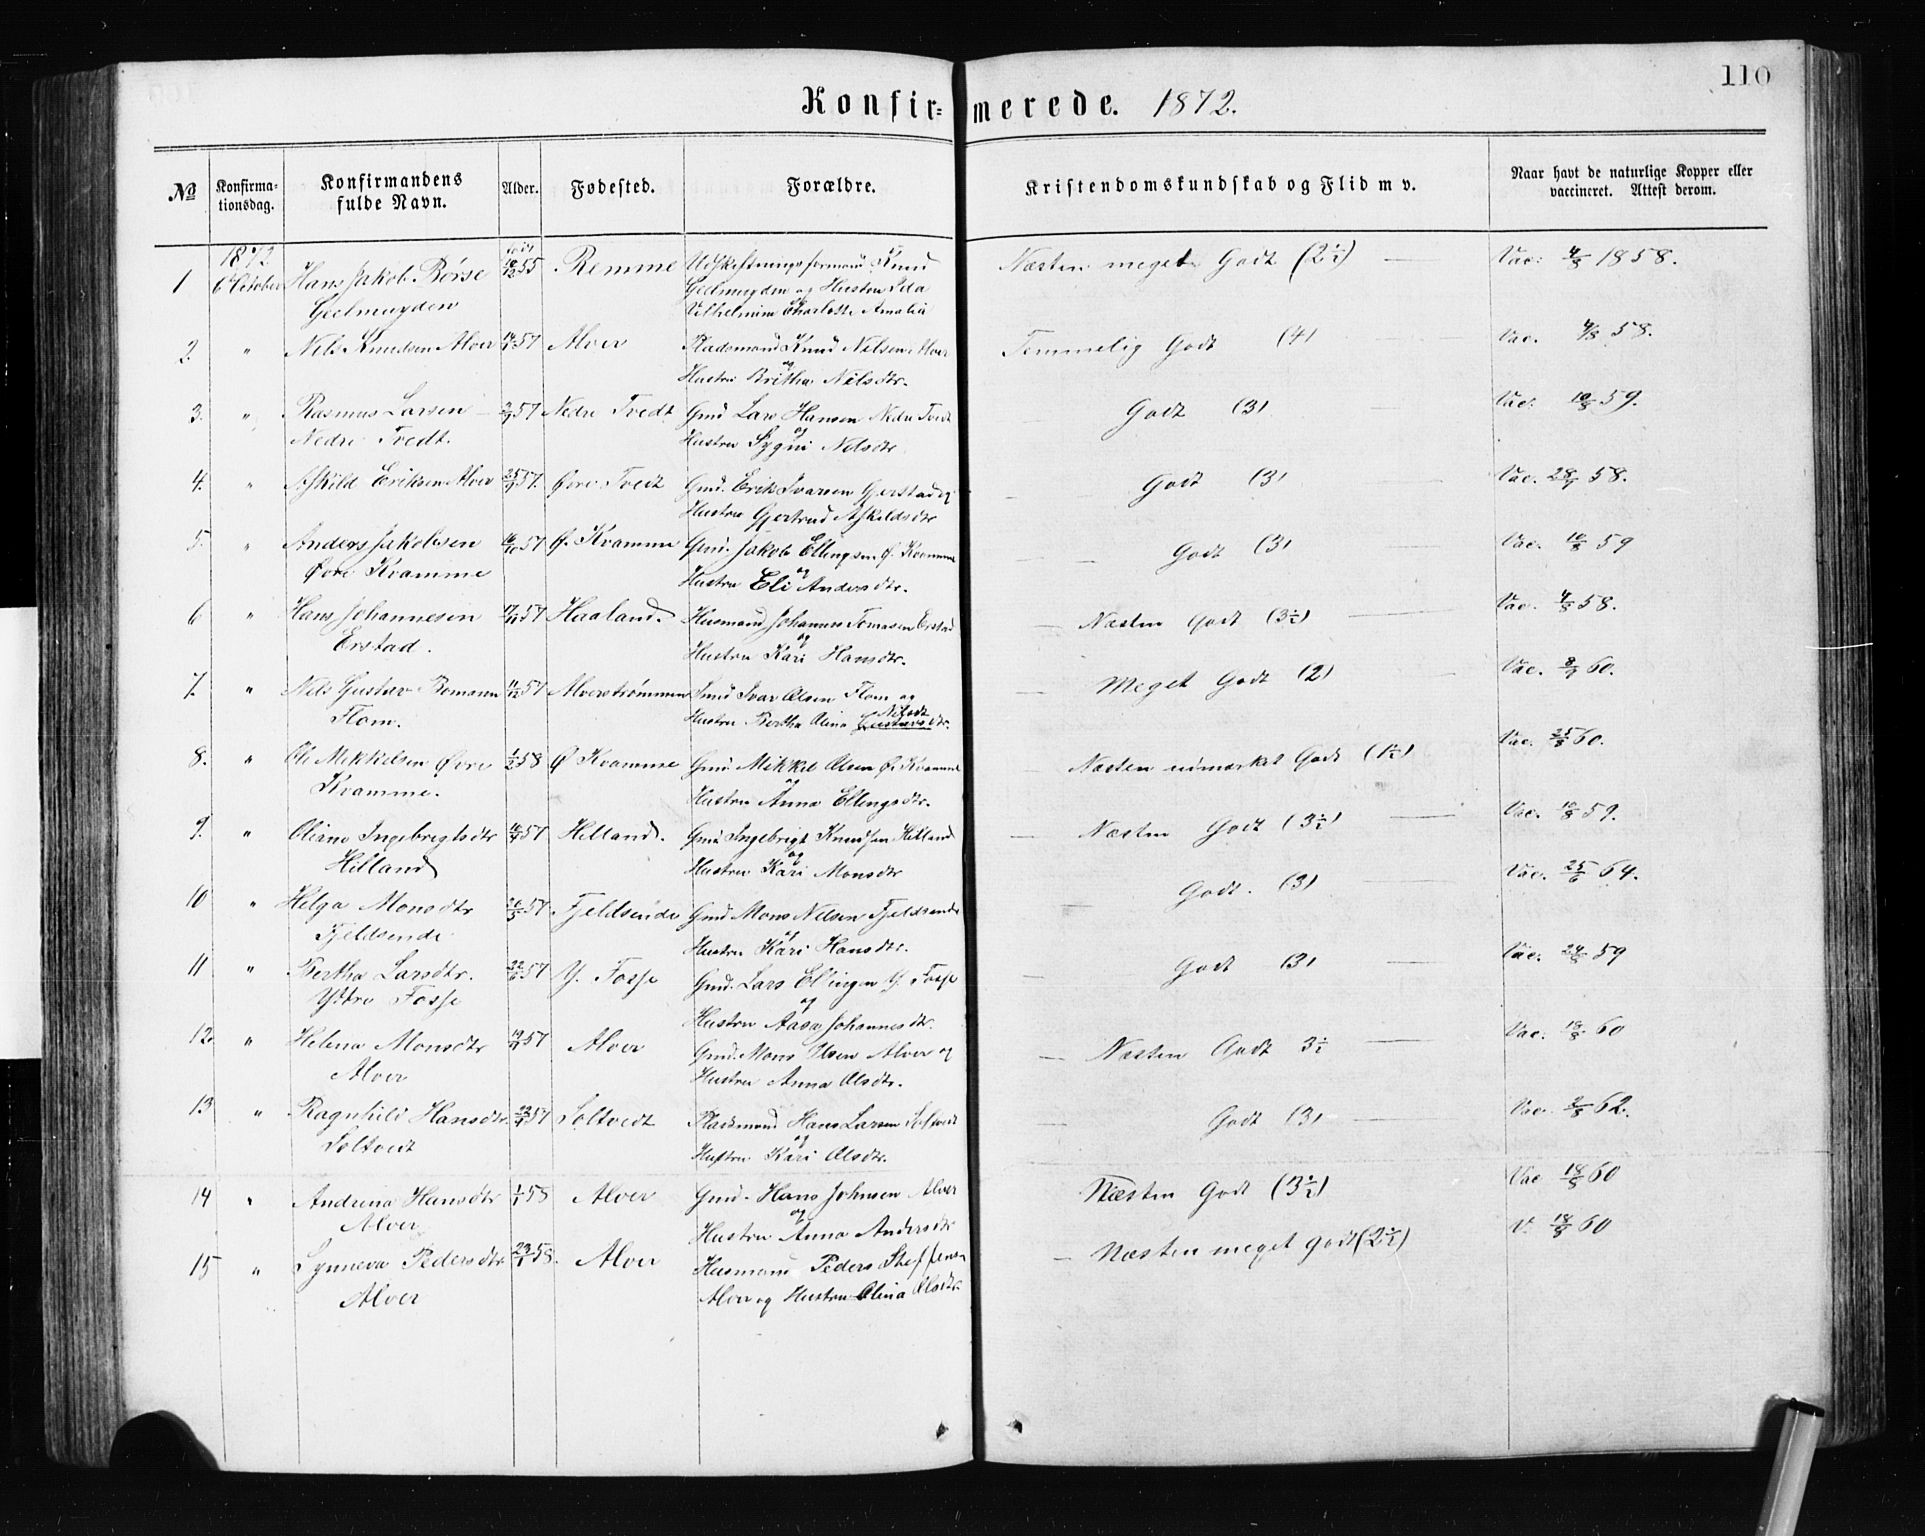 110
Konfirmerede. 1872.
№ Konfirmationsdag. Konfirmandens fulde Navn. Alder. Fødested. Forældre. Kristendomskundskab og Flid m v. Naar havt de naturlige Kopper eller vaccineret. Attest derom.
1872
1 6 October Hans Jakob Børse 10/12 55 Remme Udskiftningsformand Knud Næsten meget Godt (2½) Vac: 4/8 1858.
Geelmuyden Geelmuyden og Hustru Ida
Vilhelmine Charlotte Amalia
2. " Nils Knudsen Alver 57 Alver Pladsmand Knud Nilsen Alver Temmelig Godt (4) Vac. 4/8 58.
og
Hustru Britha Nilsdtr.
3. " Rasmus Larsen 57 Nedre Tvedt Gmd Lars Hansen Nedre Tvedt Godt (3) Vac: 10/8 59.
Nedre Tvedt. og
Hustru Sygni Nelsdtr
4. " Askild Eriksen Alver 25/9 57. Øvre Tvedt Gmd. Erik Ivarsen Gjerstad og Godt (3) Vac. 28/9 58.
Hustru Gjertrud Askildsdtr
5. " Anders Jakobsen 16/10 57 Ø. Kvamme Gmd. Jakob Ellingsen Ø. Kvamme Godt (3) Vac. 10/8 59
Øvre Kvamme og
Hustru Eli Andersdtr.
6 " Hans Johannesen 17/11 57 Haaland. Husmand Johannes Tomasen Erstad Næsten Godt (3½) Vac. 4/8 58.
Erstad. og
Hustru Kari Hansdtr.
7. " Nils Gustav Bomann 11/12 57 Alverstrømmen Smd Ivar Olsen Flom og Meget Godt (2) Vac. 60.
Flom. Hustru Bertha Olina Gustavsdtr. Nilsdt
8. " Ole Mikkelsen Øvre ½ 58 Ø Kvamme Gmd Mikkel Olsen Ø. Kvamme Næsten udmærket Godt (1½) Vac. 25/8 60.
Kvamme. og
Hustru Anna Ellingsdtr.
9. " Oliane Ingebrigtsdtr 57 Hilland. Gmd Ingebrigt Knudsen Hilland Næsten Godt (3½) Vac. 10/8 59.
Hilland og
Hustru Kari Monsdtr
10 " Helga Monsdtr 57 Fjeldsende Gmd Mons Nelsen Fjeldsende Godt. (3) Vac. 25/6 64.
Fjeldsende og
Hustru Kari Hansdtr.
11 " Bertha Larsdtr. 57 Y. Fosse Gmd. Lars Ellingsen Y. Fosse Godt (3) Vac. 59
Ytre Fosse og
Hustru Aasa Johannesdtr.
12. " Helena Monsdtr 57 Alver Gmd. Mons Olsen Alver og Næsten Godt 3½ Vac. 18/8 60
Alver Hustru Anna Olsdtr.
13 " Ragnhild Hansdtr. 57 Soltvedt Pladsmand Hans Larsen Soltvedt Godt (3) Vac. 2/8 62.
Soltvedt og
Hustru Kari Olsdtr.
14 " Andrina Hansdtr 58 Alver Gmd. Hans Johnsen Alver Næsten Godt (3½) Vac 18/8 60
Alver og
Hustru Anna Andersdtr
15 " Synneva Pedersdtr 58. Alver Husmand Peders Steffensen Næsten meget godt (2½) V. 18/8 60
Alver Alver og Hustru Olina Olsdtr.